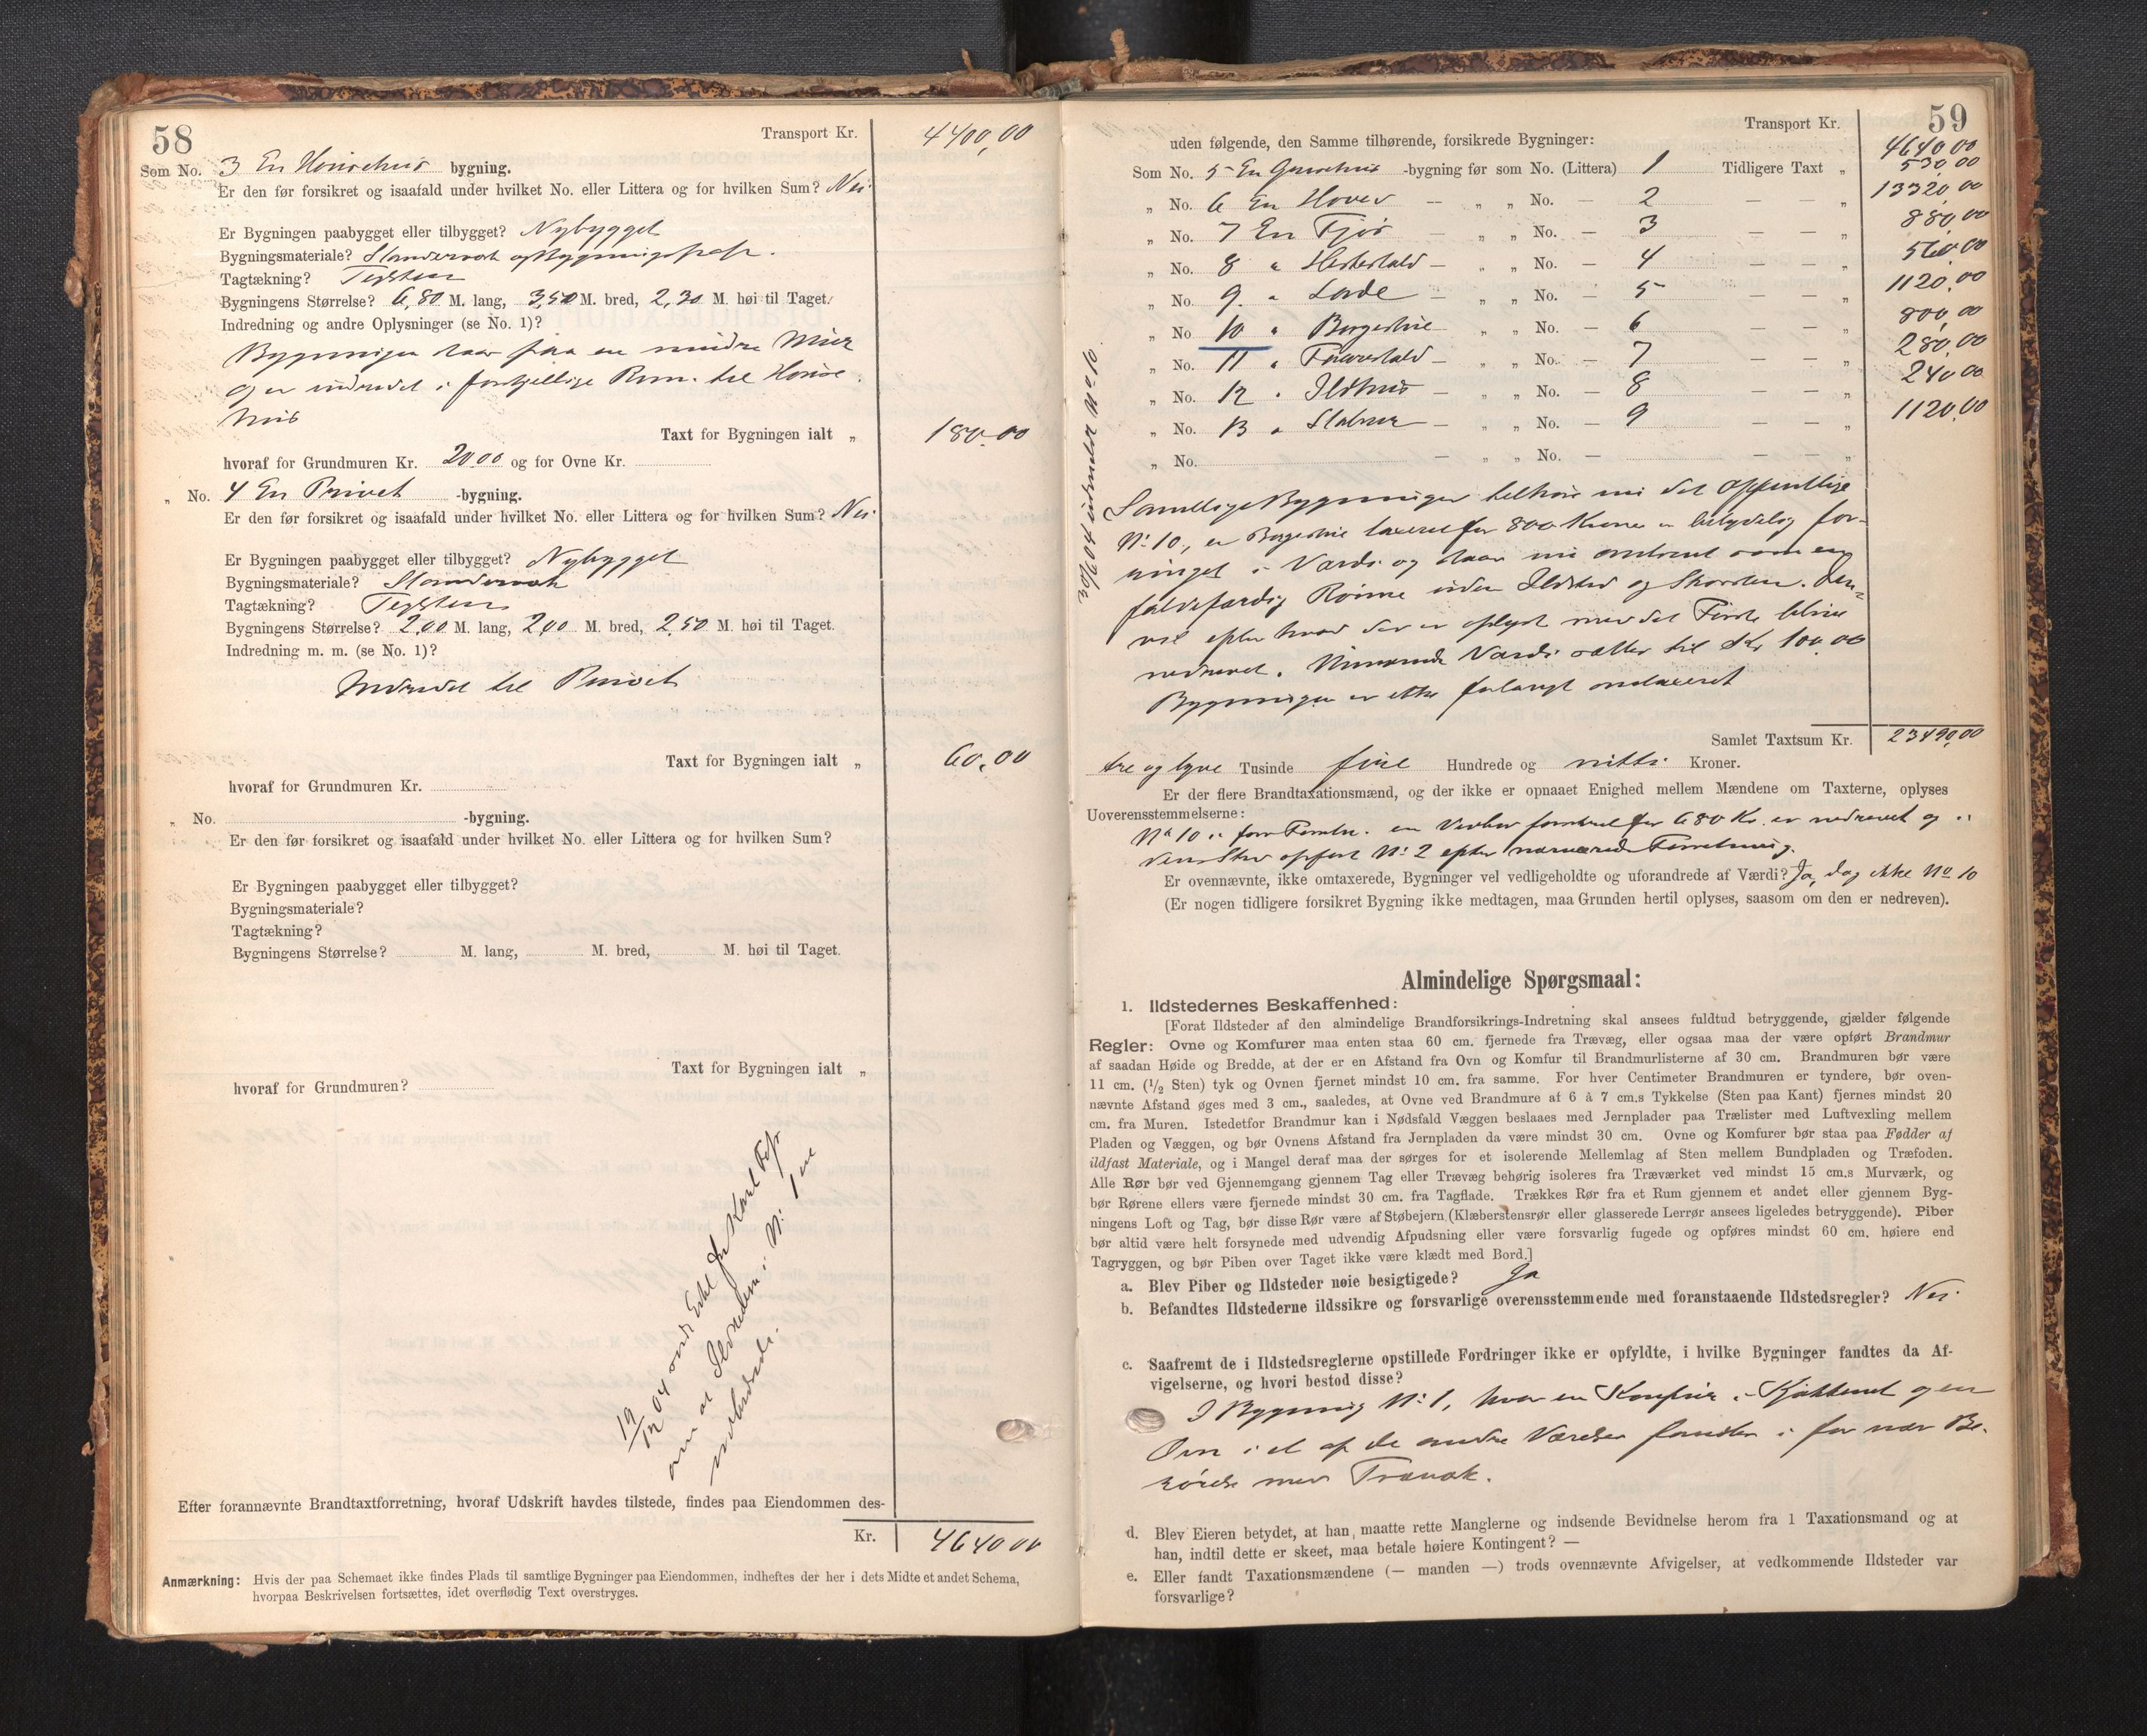 58
Transport Kr. 4400,00
Som No. 3 En Hønsehus bygning.
Er den før forsikret og isaafald under hvilket No. eller Littera og for hvilken Sum? Nei
Er Bygningen paabygget eller tilbygget? Nybygget
Bygningsmateriale? Standervæk og Bygningspap.
Tagtækning? Teglsten
Bygningens Størrelse? 6,80 M. lang, 3,50 M. bred, 2,30 M. høi til Taget.
Indredning og andre Oplysninger (se No. 1)?
Bygningen staar paa en mindre Mur
og er indredet i forskjellige Rum til Hønse
hus
Taxt for Bygningen ialt „ 180,00
hvoraf for Grundmuren Kr. 20.00 og for Ovne Kr.
„ No. 4 En Privet -bygning.
Er den før forsikret og isaafald under hvilket No. eller Littera og for hvilken Sum? Nei
Er Bygningen paabygget eller tilbygget? Nybygget
Bygningsmateriale? Standervæk
Tagtækning? Teglsten
Bygningens Størrelse? 2,00 M. lang, 2,00 M. bred, 2,50 M. høi til Taget.
Indredning m. m. (se No. 1)?
Indredet til Privet
Taxt for Bygningen ialt „ 60,00
hvoraf for Grundmuren Kr.
„ No. -bygning.
Er den før forsikret og isaafald under hvilket No. eller Littera og for hvilken Sum?
Er Bygningen paabygget eller tilbygget?
Bygningsmateriale?
Tagtækning?
Bygningens Størrelse? M. lang, M. bred, M. høi til Taget.
Taxt for Bygningen ialt „
hvoraf for Grundmuren?
19/12 04 Karl
om at Ildstederne i No 1 er
Efter forannævnte Brandtaxtforretning, hvoraf Udskrift havdes tilstede, findes paa Eiendommen des-
Kr. 4640 00
Anmærkning: Hvis der paa Schemaet ikke findes Plads til samtlige Bygninger paa Eiendommen, indheftes der her i dets Midte et andet Schema,
hvorpaa Beskrivelsen fortsættes, idet overflødig Text overstryges.
59
Transport Kr. 4640,00
uden følgende, den Samme tilhørende, forsikrede Bygninger:
Som No. 5 En -bygning før som No. (Littera) 1 Tidligere Taxt „ 530,00
„ No. 6 En Hoved — „ „ No. — 2 — — „ 13320,00
„ No. 7 En Fjøs — „ „ No. — 3 — — „ 880,00
„ No. 8 „ Hestestald — „ „ No. — 4 — — „ 560,00
„ No. 9 „ Lade — „ „ No. — 5 — — „ 1120,00
„ No 10 „ Borgestue — „ „ No. — 6 — — „ 800,00
„ No. 11 „ Faarestald — „ „ No. — 7 — — „ 280,00
„ No. 12 „ Ildhus — „ „ No. — 8 — — „ 240,00
„ No. 13 „ Stabur — „ „ No. — 9 — — „ 1120,00
„ No. — „ „ No. — — — „
30/6 04 udmeldt No 10.
Samtlige Bygninger tilhøre nu det Offentlige
No 10, en Borgestue taxeret for 800 Kroner er betydelig for-
ringet i Værdi og staar nu omtrent som en
faldefærdig Rønne uden Ildsted og Skorsten. Den
vil efter hvad der er oplyst med det Første blive
nedrevet. Nuværende Værdi sættes til Kr 100.00
Bygningen er ikke forlangt omtaxeret
Samlet Taxtsum Kr. 23490,00
tre og tyve Tusinde fire Hundrede og nitti Kroner.
Er der flere Brandtaxationsmænd, og der ikke er opnaaet Enighed mellem Mændene om Taxterne, oplyses
Uoverensstemmelserne:
No 10 i en for 680 Kr. er nedrevet og i
dens Sted opført No 2 efter nærværende Forretning.
Er ovennævnte, ikke omtaxerede, Bygninger vel vedligeholdte og uforandrede af Værdi? Ja, dog ikke No 10
(Er nogen tidligere forsikret Bygning ikke medtagen, maa Grunden hertil oplyses, saasom om den er nedreven).
Almindelige Spørgsmaal:
1. Ildstedernes Beskaffenhed:
[Forat Ildsteder af den almindelige Brandforsikrings-Indretning skal ansees fuldtud betryggende, gjælder følgende
Regler: Ovne og Komfurer maa enten staa 60 cm. fjernede fra Trævæg, eller ogsaa maa der være opført Brandmur
af saadan Høide og Bredde, at der er en Afstand fra Ovn og Komfur til Brandmurlisterne af 30 cm. Brandmuren bør være
11 cm. (1/2 Sten) tyk og Ovnen fjernet mindst 10 cm. fra samme. For hver Centimeter Brandmuren er tyndere, bør oven-
nævnte Afstand øges med 3 cm., saaledes, at Ovne ved Brandmure af 6 à 7 cm.s Tykkelse (Sten paa Kant) fjernes mindst 20
cm. fra Muren. Istedetfor Brandmur kan i Nødsfald Væggen beslaaes med Jernplader paa Trælister med Luftvexling mellem
Pladen og Væggen, og bør Ovnens Afstand fra Jernpladen da være mindst 30 cm. Ovne og Komfurer bør staa paa Fødder af
ildfast Materiale, og i Mangel deraf maa der sørges for et isolerende Mellemlag af Sten mellem Bundpladen og Træfoden.
Alle Rør bør ved Gjennemgang gjennem Tag eller Trævæg behørig isoleres fra Træværket ved mindst 15 cm.s Murværk, og
bør Rørene ellers være fjernede mindst 30 cm. fra Tagflade. Trækkes Rør fra et Rum gjennem et andet eller gjennem Byg-
ningens Loft og Tag, bør disse Rør være af Støbejern (Klæberstensrør eller glasserede Lerrør ansees ligeledes betryggende). Piber
bør altid være helt forsynede med udvendig Afpudsning eller være forsvarlig fugede og opføres mindst 60 cm. høiere end
Tagryggen, og bør Piben over Taget ikke være klædt med Bord.]
a. Blev Piber og Ildsteder nøie besigtigede? Ja
b. Befandtes Ildstederne ildssikre og forsvarlige overensstemmende med foranstaaende Ildstedsregler? Nei
c. Saafremt de i Ildstedsreglerne opstillede Fordringer ikke er opfyldte, i hvilke Bygninger fandtes da Af-
vigelserne, og hvori bestod disse?
I Bygning No 1, hvor en Komfur i Kjøkkenet og en
Ovn i et af de andre Værelser fandtes i for nær Be-
rørelse med Trævæk.
d. Blev Eieren betydet, at han maatte rette Manglerne og indsende Bevidnelse herom fra 1 Taxationsmand og at
han, indtil dette er skeet, maa betale høiere Kontingent? —
e. Eller fandt Taxationsmændene (— manden —) trods ovennævnte Afvigelser, at vedkommende Ildsteder var
forsvarlige?